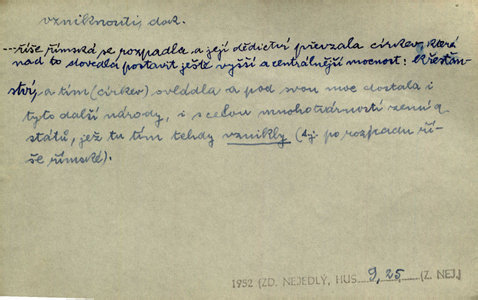 vzniknouti, dok.
---říše římská se rozpadla a její dědictví převzala církev, která
nad to dovedla postavit ještě vyšší a centrálnější mocnost: křesťan-
ství, a tím (církev) ovládla a pod svou moc dostala i
tyto další národy, i s celou mnohotvárností zemí a
států, jež tu tím tehdy vznikly (tj. po rozpadu ří-
še římské).
1952 (ZD. NEJEDLÝ, HUS 9, 25 (Z. NEJ.)